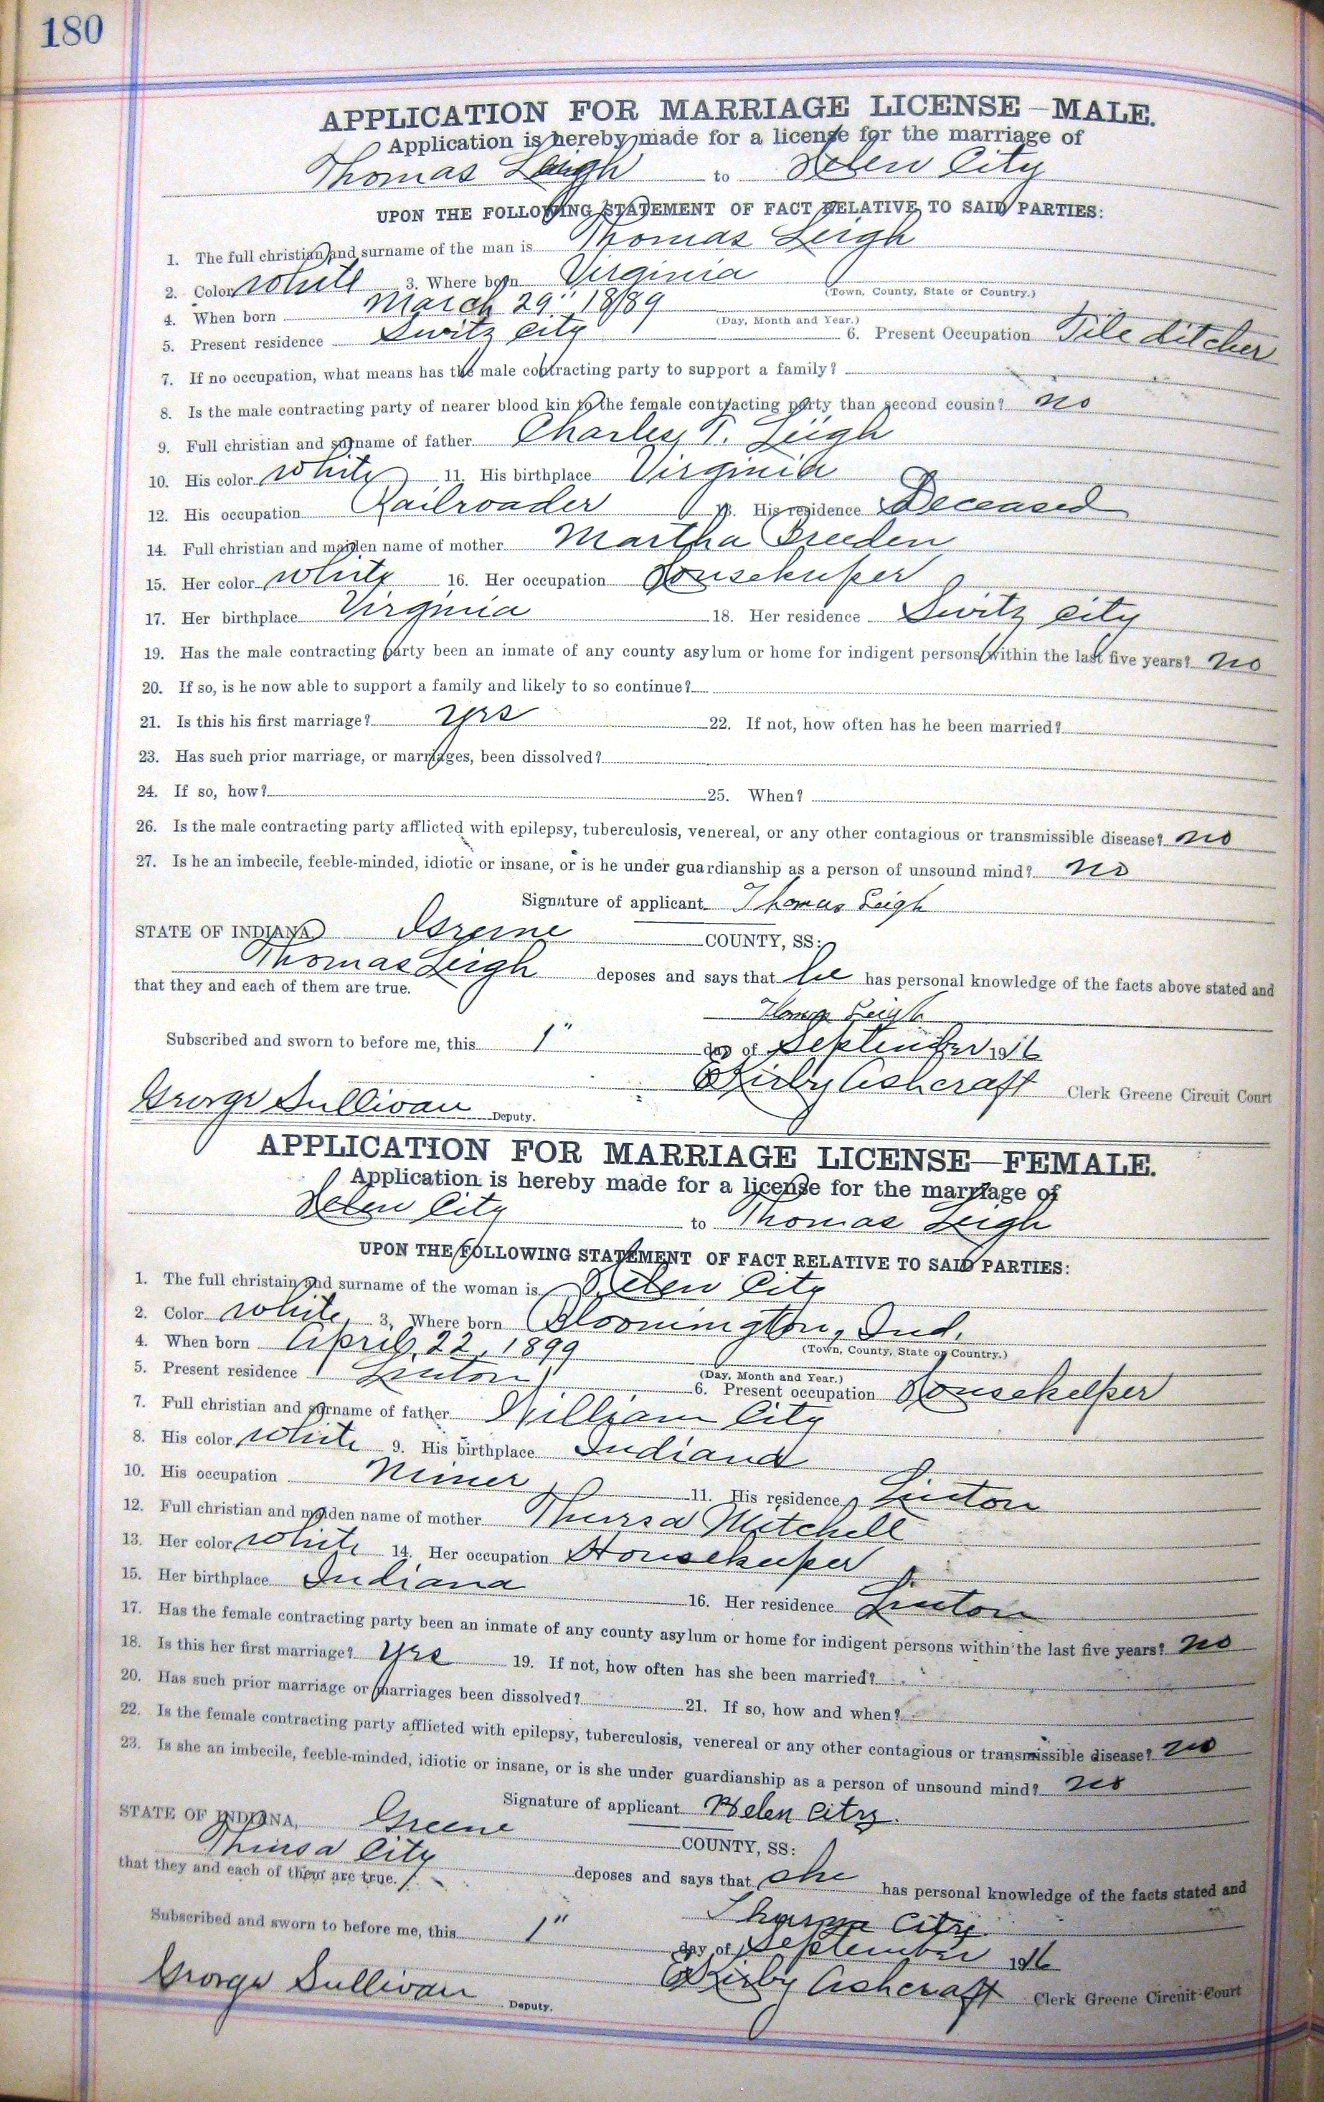 180
APPLICATION FOR MARRIAGE LICENSE—MALE.
Application is hereby made for a license for the marriage of
Thomas Leigh to Helen City
UPON THE FOLLOWING STATEMENT OF FACT RELATIVE TO SAID PARTIES:
1. The full christian and surname of the man is Thomas Leigh
2. Color white 3. Where born Virginia
(Town, County, State or Country.)
4. When born March 29" 1889
(Day, Month and Year.)
5. Present residence Switz City 6. Present Occupation Tile ditcher
7. If no occupation, what means has the male contracting party to support a family?
8. Is the male contracting party of nearer blood kin to the female contracting party than second cousin? no
9. Full christian and surname of father Charles T. Leigh
10. His color white 11. His birthplace Virginia
12. His occupation Railroader 13. His residence Deceased
14. Full christian and maiden name of mother Martha Breeden
15. Her color white 16. Her occupation Housekeeper
17. Her birthplace Virginia 18. Her residence Switz City
19. Has the male contracting party been an inmate of any county asylum or home for indigent persons within the last five years? no
20. If so, is he now able to support a family and likely to so continue?
21. Is this his first marriage? yes 22. If not, how often has he been married?
23. Has such prior marriage, or marriages, been dissolved?
24. If so, how? 25. When?
26. Is the male contracting party afflicted with epilepsy, tuberculosis, venereal, or any other contagious or transmissible disease? no
27. Is he an imbecile, feeble-minded, idiotic or insane, or is he under guardianship as a person of unsound mind? no
Signature of applicant Thomas Leigh
STATE OF INDIANA, Greene COUNTY, SS:
Thomas Leigh deposes and says that he has personal knowledge of the facts above stated and
that they and each of them are true.
Thomas Leigh
Subscribed and sworn to before me, this 1" day of September 1916
E Kirby Ashcraft Clerk Greene Circuit Court
George Sullivan Deputy.
APPLICATION FOR MARRIAGE LICENSE—FEMALE.
Application is hereby made for a license for the marriage of
Helen City to Thomas Leigh
UPON THE FOLLOWING STATEMENT OF FACT RELATIVE TO SAID PARTIES:
1. The full christain and surname of the woman is Helen City
2. Color white 3. Where born Bloomington, Ind.
(Town, County, State or Country.)
4. When born April 22, 1899
(Day, Month and Year.)
5. Present residence Linton 6. Present occupation Housekeeper
7. Full christian and surname of father William City
8. His color white 9. His birthplace Indiana
10. His occupation Miner 11. His residence Linton
12. Full christian and maiden name of mother Thursa Mitchell
13. Her color white 14. Her occupation Housekeeper
15. Her birthplace Indiana 16. Her residence Linton
17. Has the female contracting party been an inmate of any county asylum or home for indigent persons within the last five years? no
18. Is this her first marriage? yes 19. If not, how often has she been married?
20. Has such prior marriage or marriages been dissolved? 21. If so, how and when?
22. Is the female contracting party afflicted with epilepsy, tuberculosis, venereal or any other contagious or transmissible disease? no
23. Is she an imbecile, feeble-minded, idiotic or insane, or is she under guardianship as a person of unsound mind? no
Signature of applicant Helen City.
STATE OF INDIANA, Greene COUNTY, SS:
Thursa City deposes and says that she has personal knowledge of the facts stated and
that they and each of them are true.
City
Subscribed and sworn to before me, this 1" day of September 1916
E Kirby Ashcraft Clerk Greene Circuit Court
George Sullivan Deputy.